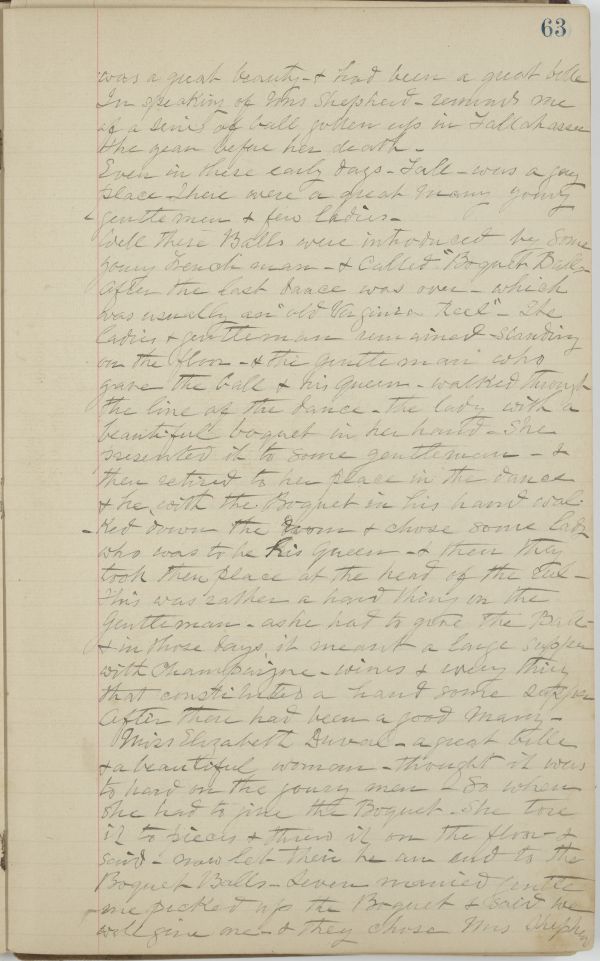 63
was a great beauty - & had been a great belle
In speaking of Mrs Shepherd - reminds me
of a series of ball gotten up in Tallahassee
the year before her death -
Even in these early days - Tall - was a gay
place - There were a great many young
gentlemen & few ladies -
Well these Balls were introduced by some
young French man - & called "Boquet Balls"
After the last dance was over - which
was usually an "old Virginia Reel" - The
ladies & gentleman remained standing
on the floor - & the gentleman who
gave the ball & his queen - walked through
the line of the dance - the lady with a
beautiful boquet in her hand - She
presented it to some gentleman - &
then retired to her place in the dance
& he with the Boquet in his hand wal-
ked down the room & chose some lady
who was to be his Queen - & then they
took their place at the head of the
This was rather a hard thing on the
Gentleman - as he had to give the Ball -
& in those days it meant a large supper
with Champaigne - wines & every thing
that constitutes a hand some supper
After there had been a good many -
Miss Elizabeth Duval - a great belle
& a beautiful woman - thought it was
to hard on the young men - So when
she had to give the Boquet - She tore
it to pieces & threw it on the floor - &
said - now let their be an end to the
Boquet Balls - Seven married gentle
me picked up the Boquet & said we
will give one - & they chose Mrs Shepher